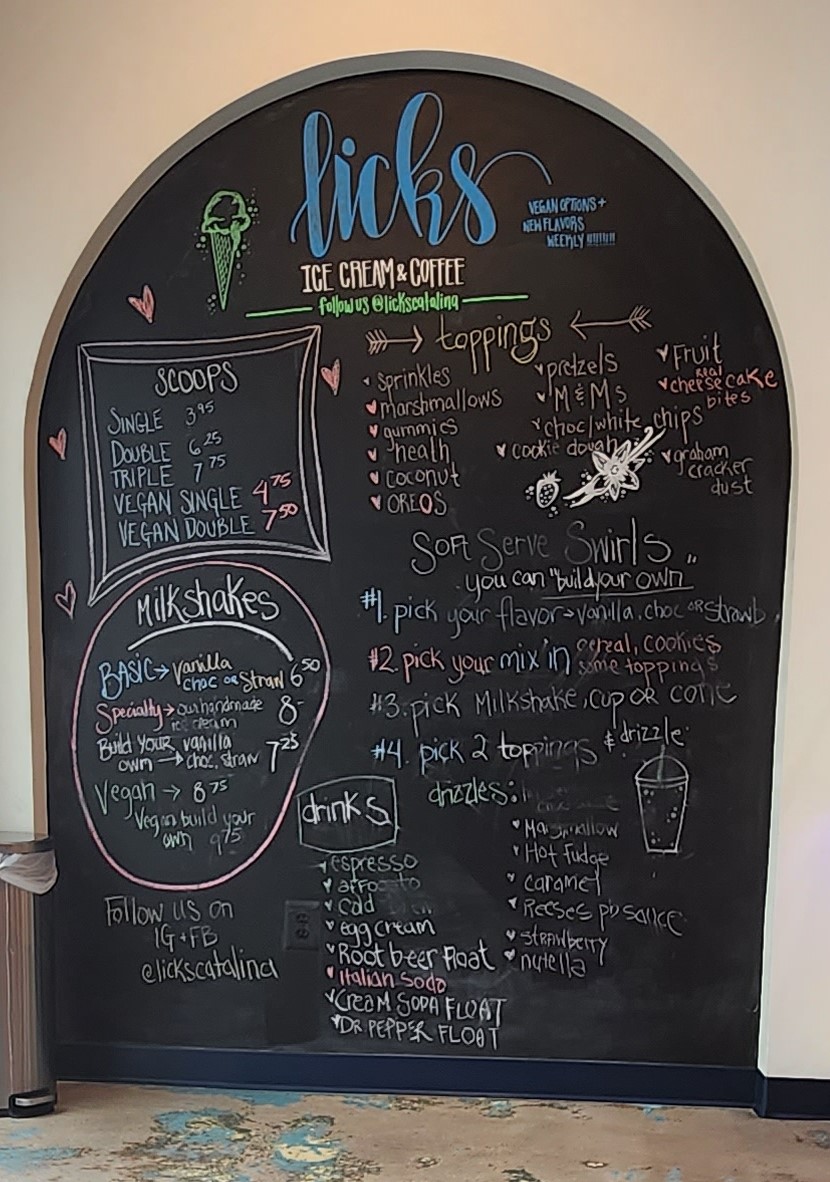 licks
VEGAN OPTIONS +
NEW FLAVORS
WEEKLY !!!!!!!!
ICE CREAM & COFFEE
follow us @lickscatalina
SCOOPS
SINGLE 3.95
DOUBLE 6.25
TRIPLE 7.75
VEGAN SINGLE 4.75
VEGAN DOUBLE 7.50
toppings
sprinkles
marshmallows
gummies
heath
coconut
OREOS
pretzels
M & Ms
choc/white chips
cookie dough
Fruit
real
cheesecake
bites
graham
cracker
dust
Milkshakes
BASIC → Vanilla
choc or Straw 6.50
Specialty → our handmade
ice cream 8-
Build Your vanilla
own → choc, straw 7.25
Vegan → 8.75
Vegan build your
own 9.75
Follow us on
IG + FB
@lickscatalina
Soft Serve Swirls
you can "build your own"
#1. pick your flavor → vanilla, choc or strawb
#2. pick your mix in cereal, cookies
some toppings
#3. pick Milkshake, cup or cone
#4. pick 2 toppings & drizzle
drizzles:
Marshmallow
Hot Fudge
caramel
Reeses pb sauce
strawberry
nutella
drinks
espresso
affogato
egg cream
Root beer Float
Italian Soda
CREAM SODA FLOAT
DR PEPPER FLOAT